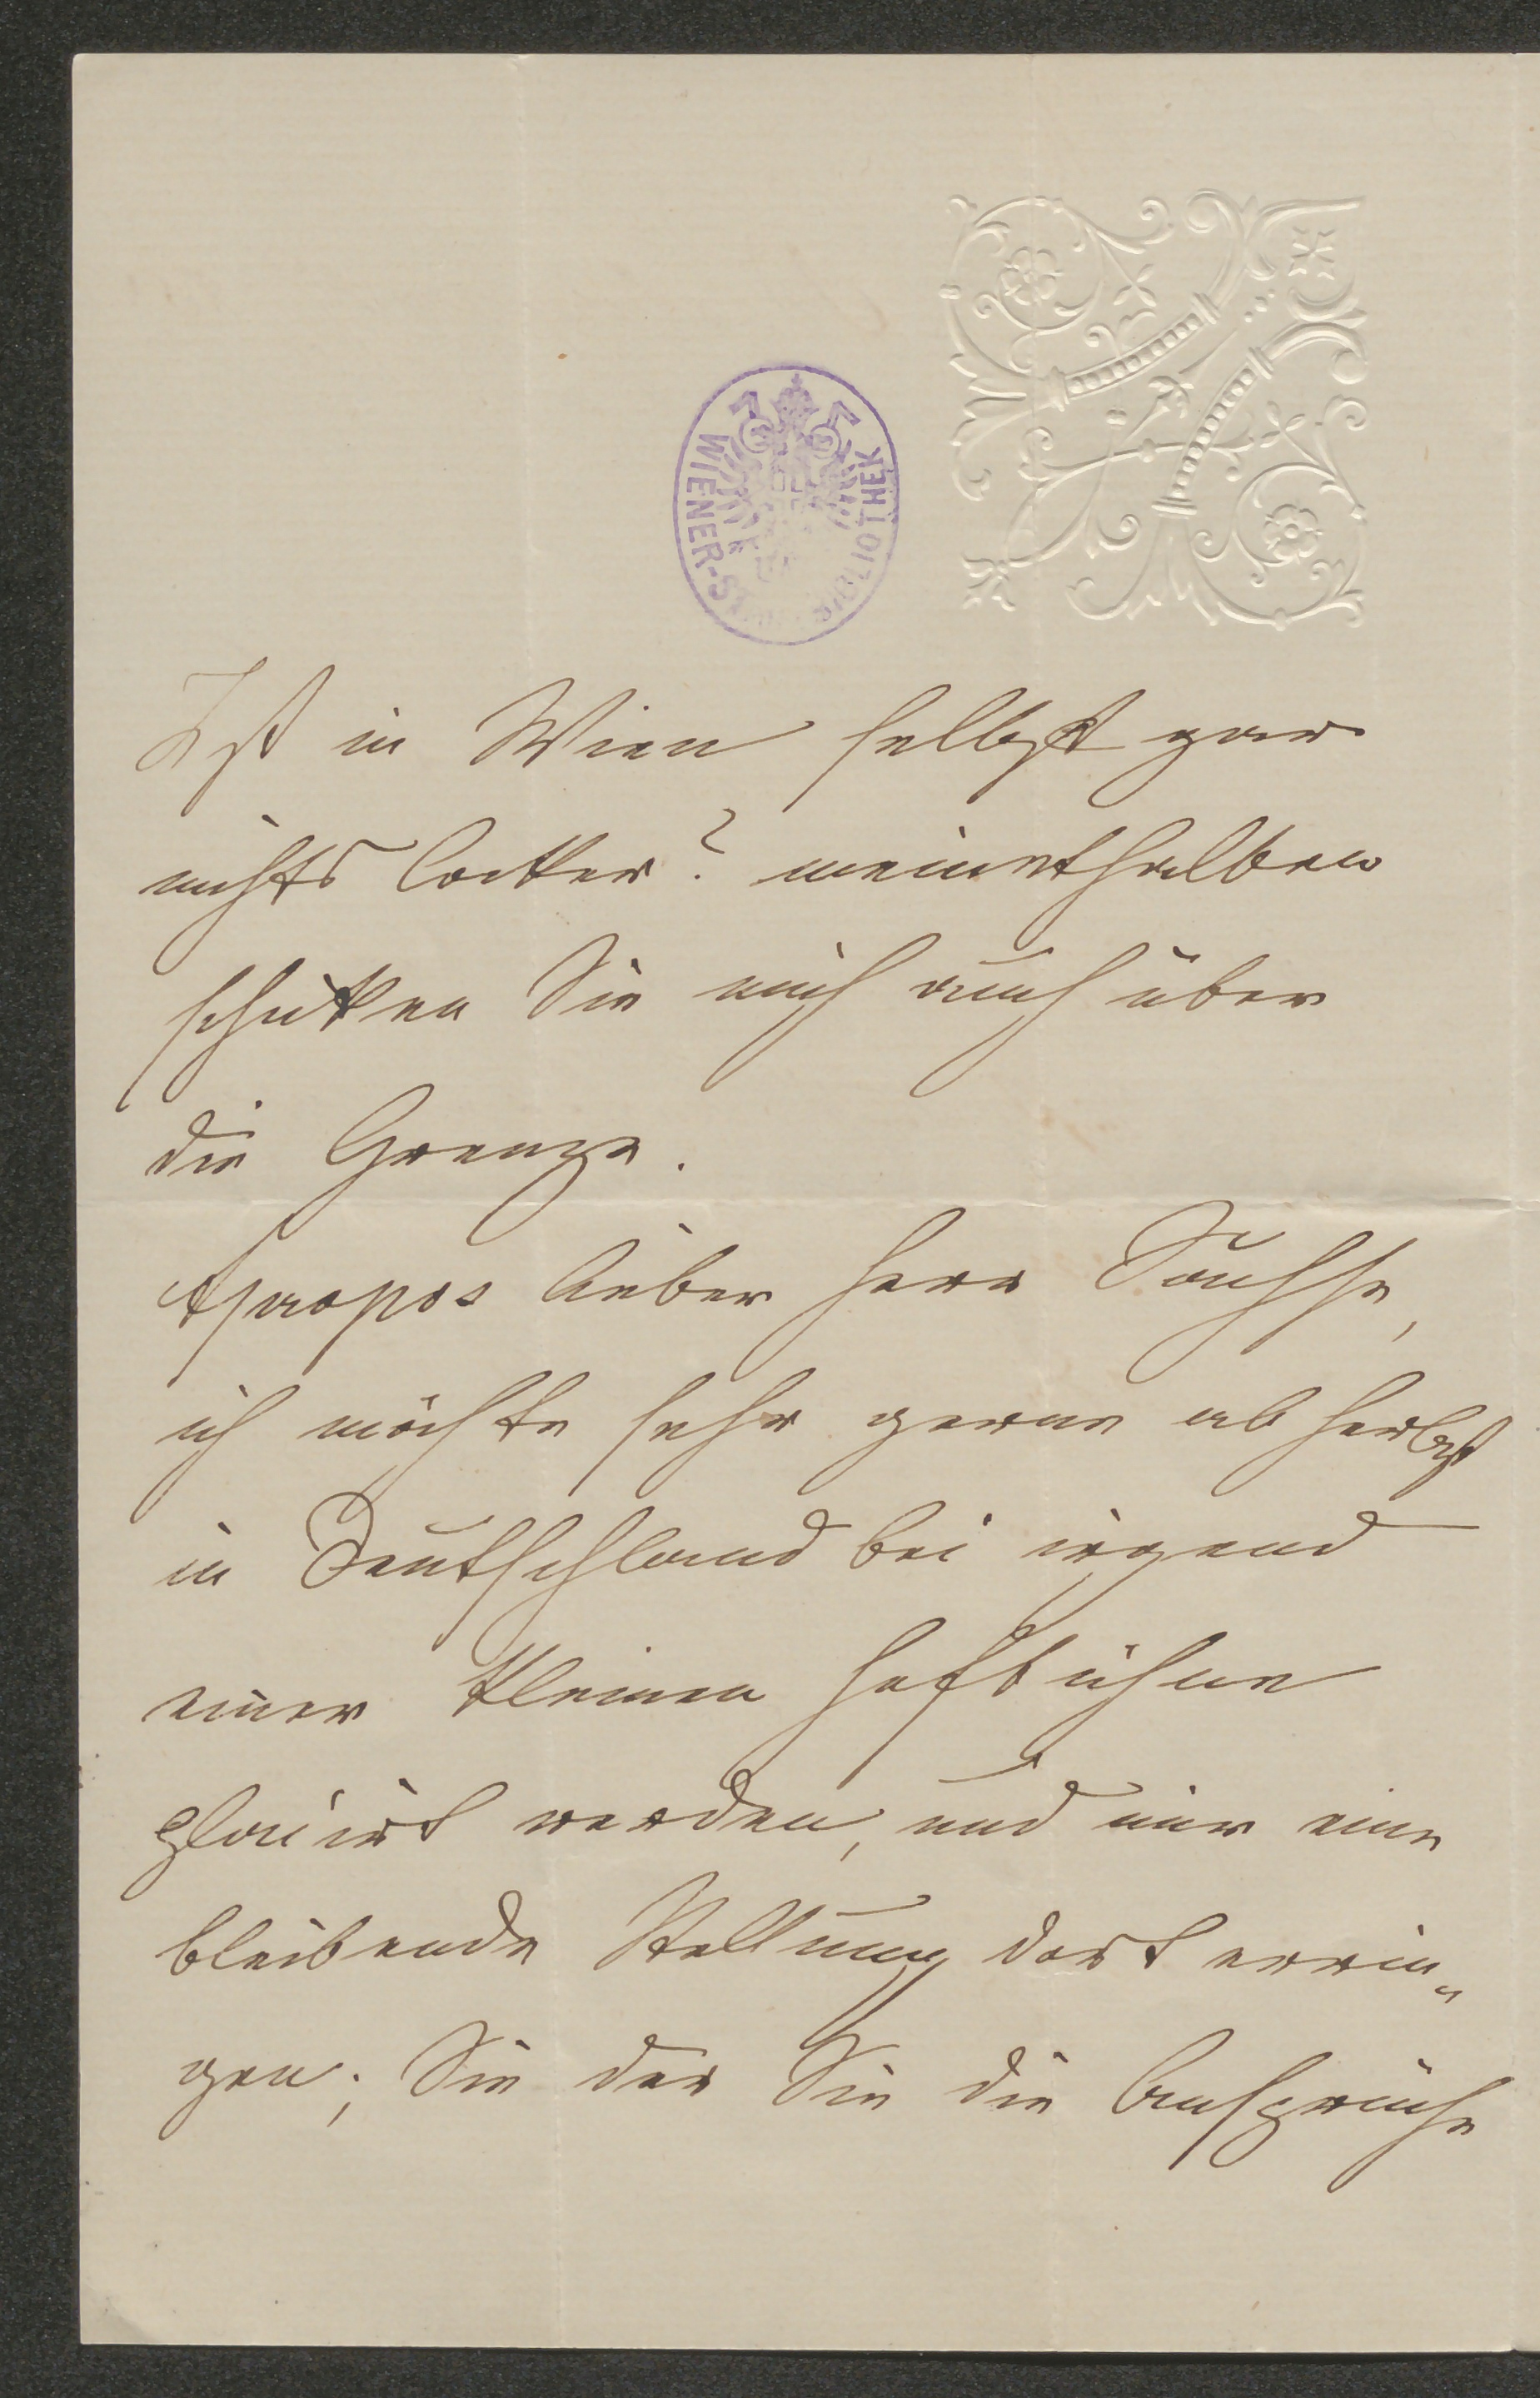 WIENER-ST BIBLIOTHEK
Ist in Wien selbst gar
nichts locker? meinethalben
schicken Sie mich auch über
die Grenze.
Apropos lieber Herr Sachse,
ich möchte sehr gerne ab Herbst
in Deutschland bei irgend
einer kleinen Hofbühne
placirt werden, und mir eine
bleibende Stellung dort errin„
gen; Sie der Sie die Ansprüche